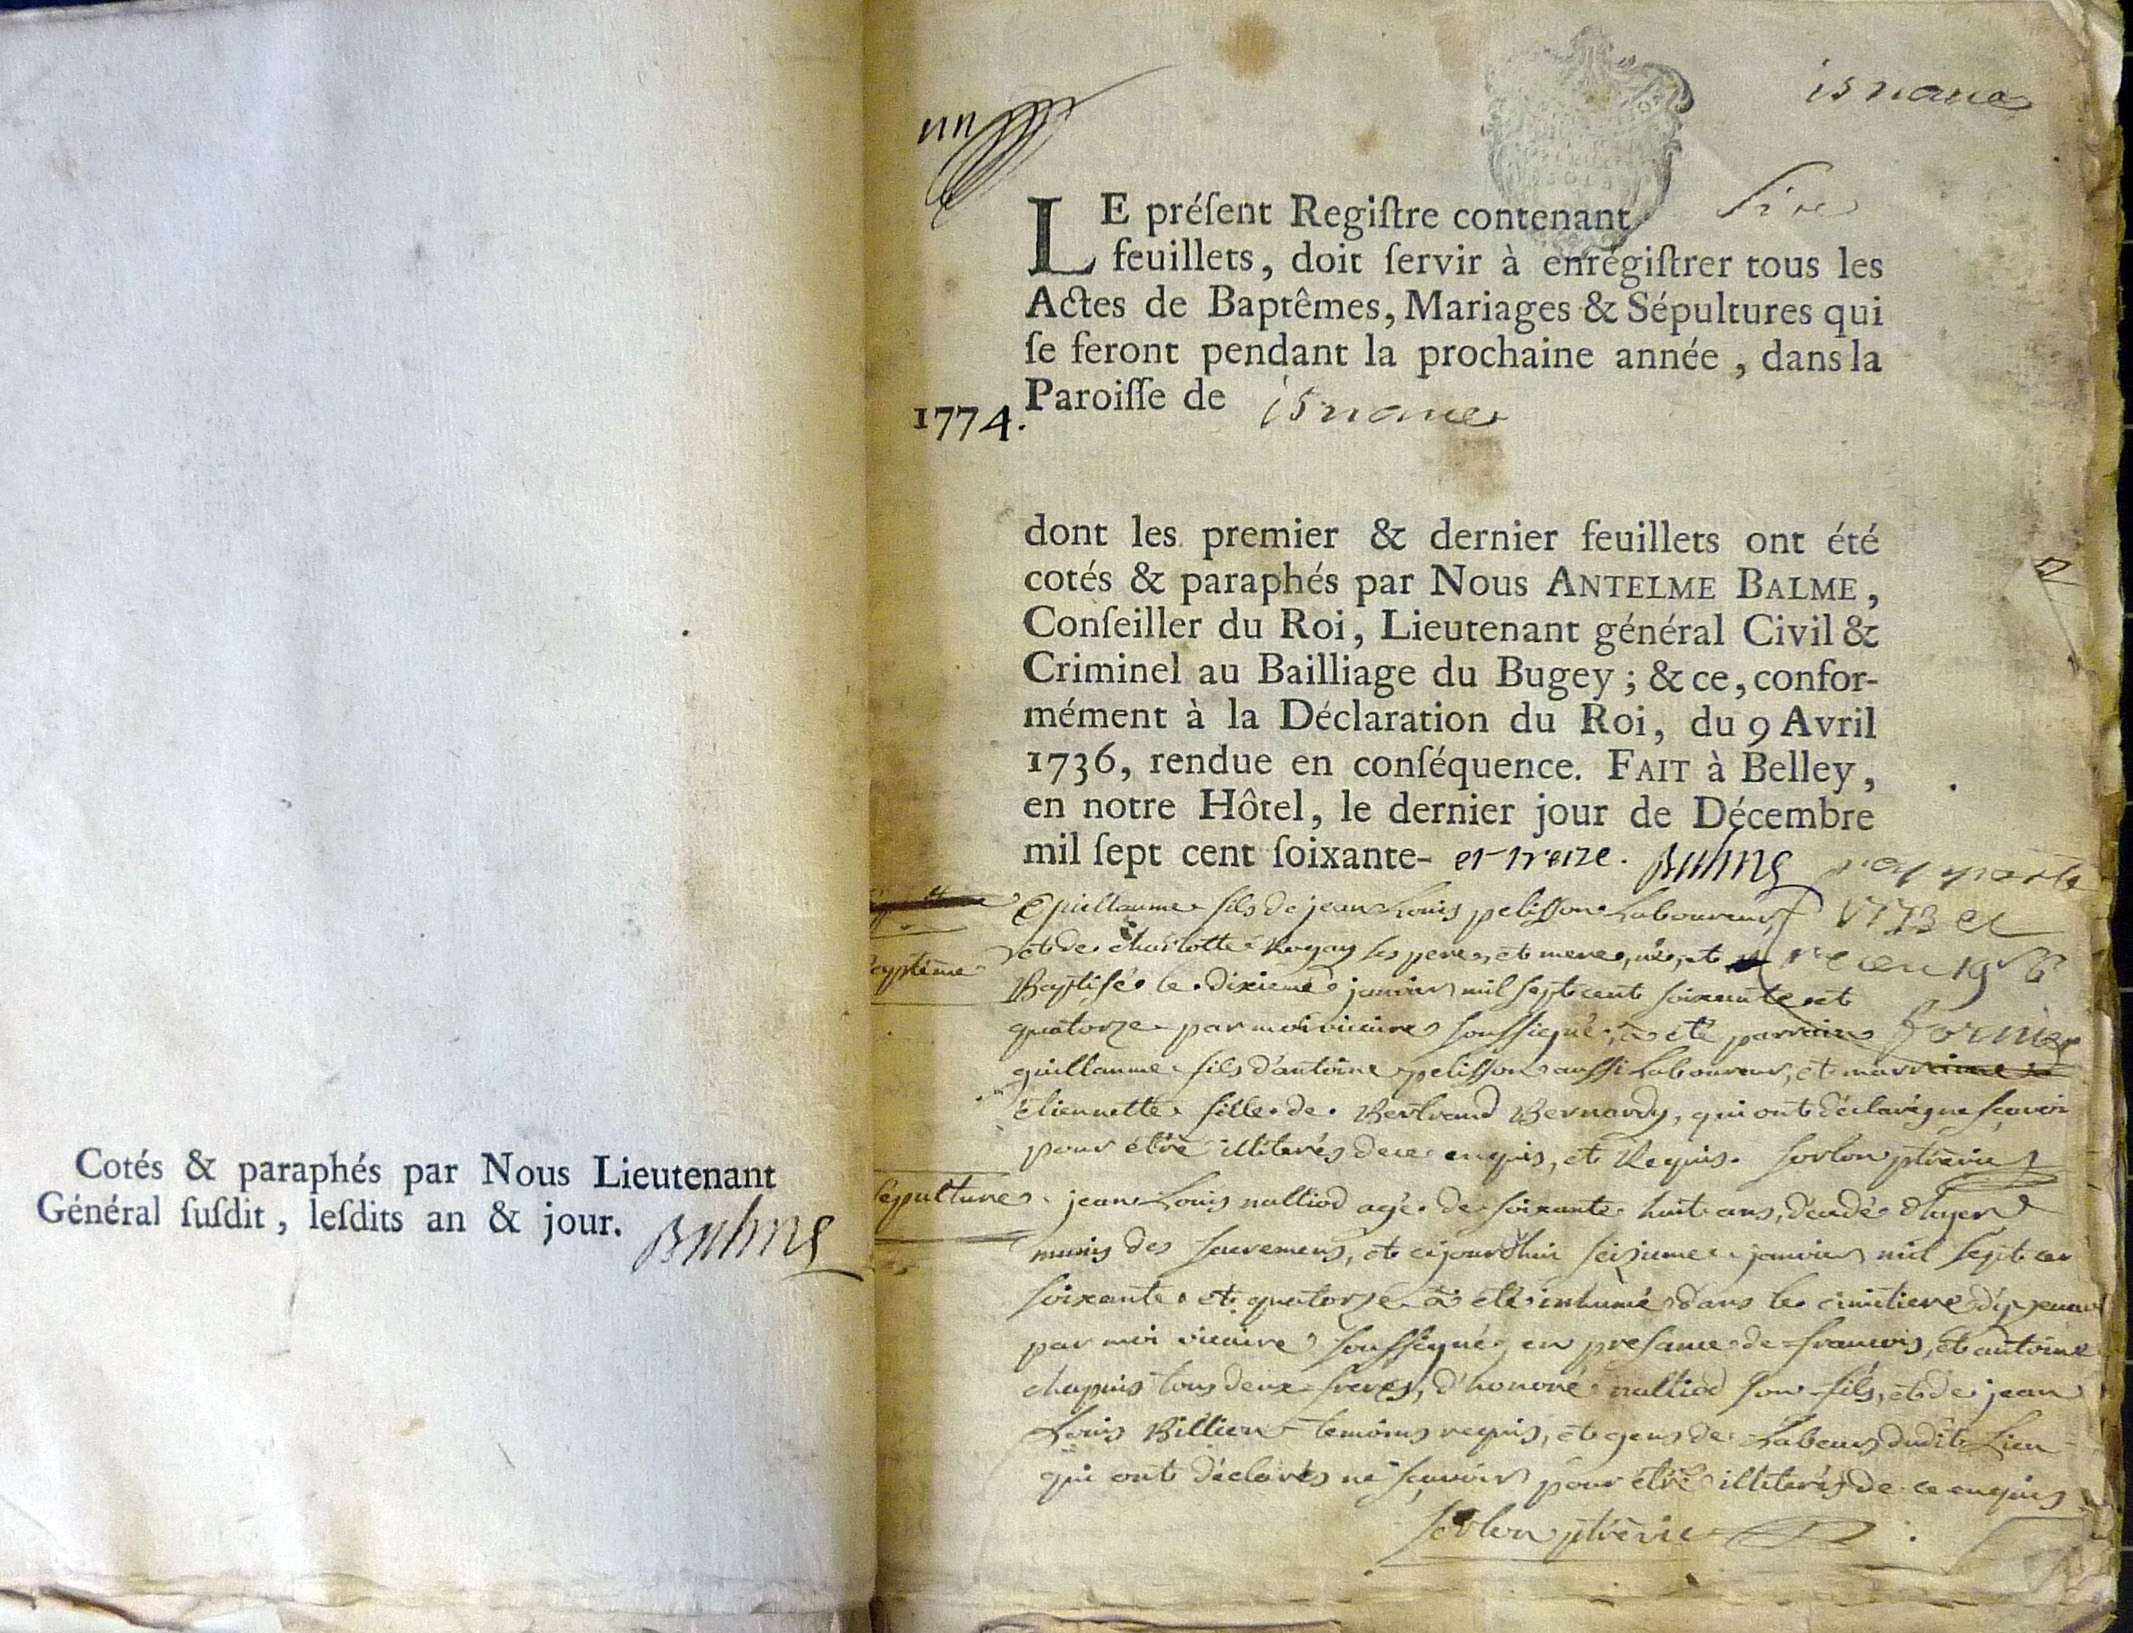 Cotés & paraphés par Nous Lieutenant
Général ſuſdit, leſdits an & jour. Balme
un
isnaue
LE préſent Regiſtre contenant Six
feuillets, doit ſervir à enrégiſtrer tous les
Actes de Baptêmes, Mariages & Sépultures qui
ſe feront pendant la prochaine année, dans la
1774. Paroiſſe de isnaue
dont les premier & dernier feuillets ont été
cotés & paraphés par Nous ANTELME BALME,
Conſeiller du Roi, Lieutenant général Civil &
Criminel au Bailliage du Bugey; & ce, confor-
mément à la Déclaration du Roi, du 9 Avril
1736, rendue en conſéquence. FAIT à Belley,
en notre Hôtel, le dernier jour de Décembre
mil ſept cent ſoixante- et treize. Balme
r'apporté
1773 et
Guillaume fils de jean Louis pelisson Laboureur,
et de charlotte les pere, et mere, né, et
Baptême
Baptisé le dixieme janvier mil sept cent soixante et
quatorze par moi vicaire soussigné, a été parrain
guillaume fils d'antoine pelisson aussi Laboureur, et marraine
etiennette fille de Bertrand Bernardy, qui ont déclaré ne sçavoir
pour etre illiterés de ce enquis, et Requis. sorlon ptre vic
Sepulture
jean Louis nalliod agé de soixante huit ans, décédé d'hyer
munis des sacremens, et cejourdhui seizieme janvier mil sept cen
soixante et quatorze a été inhumé dans le cimitiere
par moi vicaire soussigné en presance de francois, et antoine
chapuis tous deux freres, d'honoré nalliod son fils, et de jean
Louis Billion temoins requis, et gens de Labeur dudit Lieu
qui ont déclarés ne sçavoir pour etre illiterés de ce enquis
sorlon ptre vic